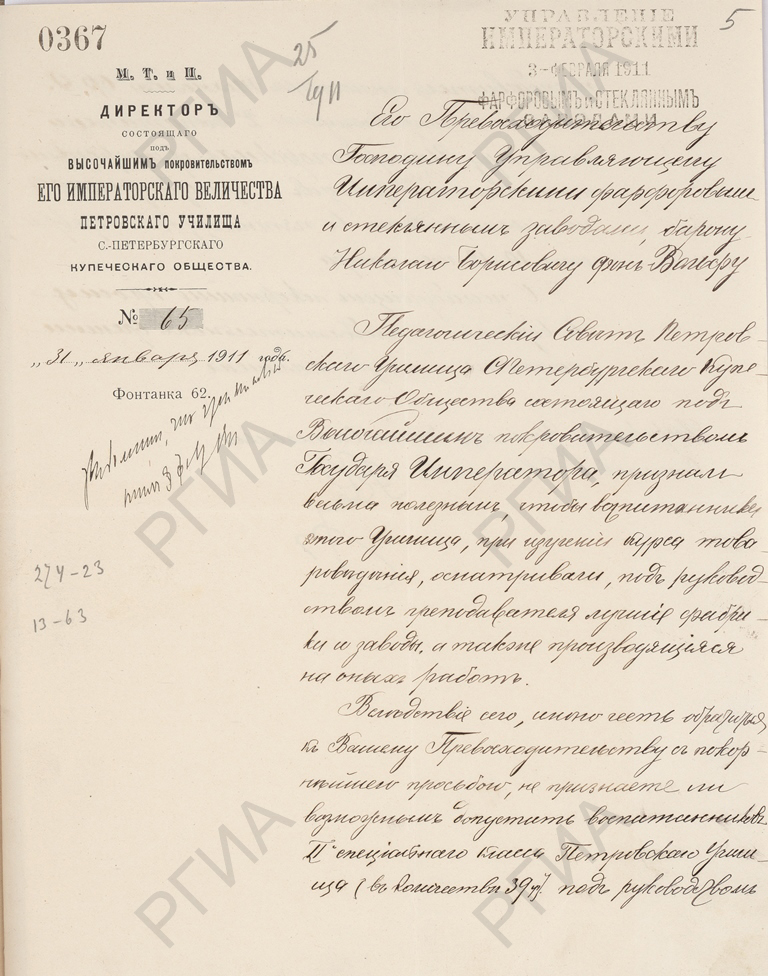 0367
М. Т. и П.
ДИРЕКТОРЪ
СОСТОЯЩАГО
ПОДЪ
ВЫСОЧАЙШИМЪ покровительствомъ
ЕГО ИМПЕРАТОРСКАГО ВЕЛИЧЕСТВА
ПЕТРОВСКАГО УЧИЛИЩА
С.-ПЕТЕРБУРГСКАГО
КУПЕЧЕСКАГО ОБЩЕСТВА.
№ 65
„31„ января 1911 года.
Фонтанка 62.
274-23
13-63
25
1911
УПРАВЛЕНІЕ
ИМПЕРАТОРСКИМИ
3-ФЕВРАЛЯ 1911
ФАРФОРОВЫМЪ и СТЕКЛЯННЫМЪ
ЗАВОДАМИ
5
Его Превосходительству
Господину Управляющему
Императорскими фарфоровым
и стекляннымъ заводами, барону
Николаю Борисовичу фонъ-Вольфу
Педагогическій Совѣтъ Петров-
скаго Училища СПетербургскаго Купе-
ческаго Общества состоящаго подъ
Высочайшимъ покровительствомъ
Государя Императора, призналъ
весьма полезнымъ, чтобы воспитанники
этого Училища, при изученіи курса това-
ровѣдѣнія, осматривали, подъ руковод-
ствомъ преподавателя лучшіе фабри-
ки и заводы, а также производящіяся
на оныхъ работы.
Вслѣдствіе сего, имѣю честь обратиться
къ Вашему Превосходительству съ покор-
нѣйшею просьбою, не признаете ли
возможнымъ допустить воспитанниковъ
II спеціальнаго класса Петровскаго Учи-
лища (въ количествѣ 39 ч). подъ руководствомъ
РГИА
РГИА
РГИА
РГИА
РГИА
РГИА